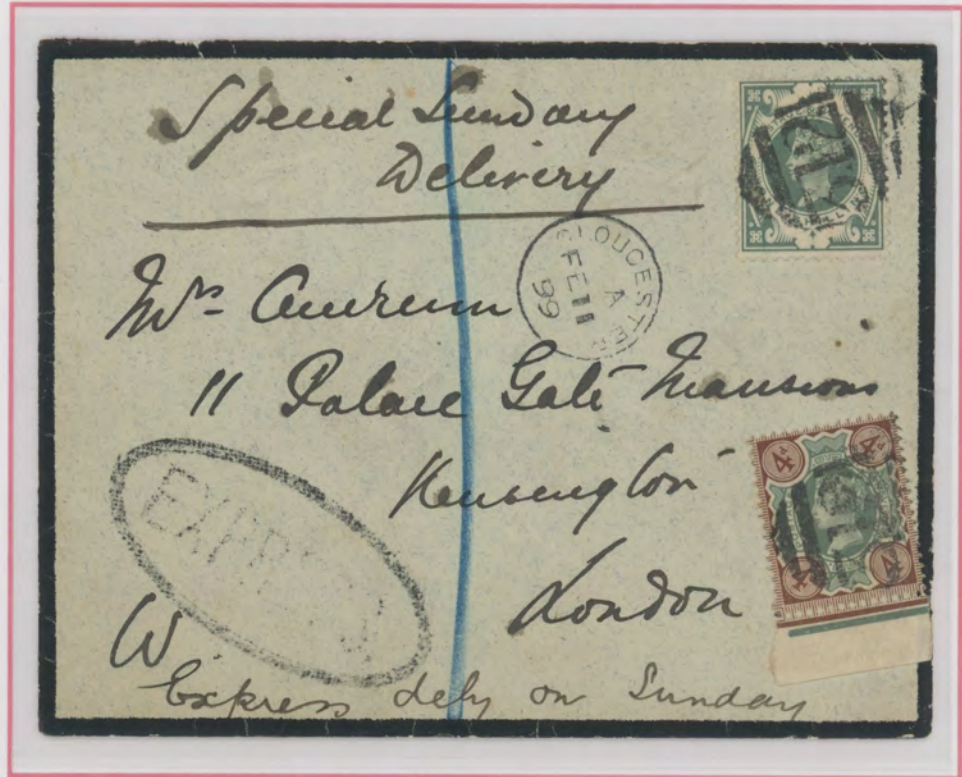 Special Sunday
Delivery
GLOUCESTER
A
FE 11
99
Mrs
11 Palace Gate Mansions
Kensington
London
W
EXPRESS
4d 4d
4d 4d
Express dely on Sunday